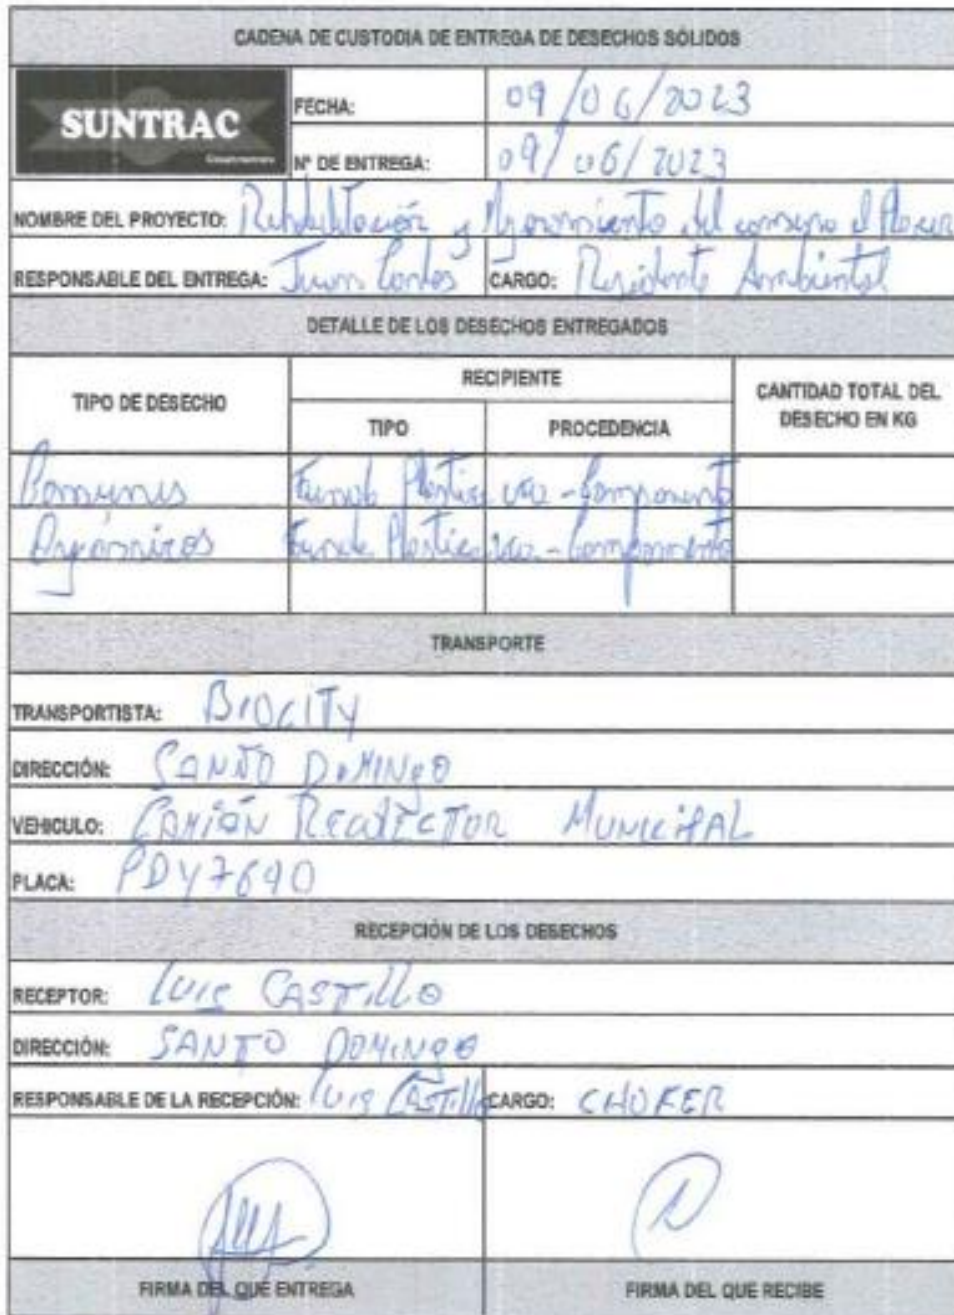 CADENA DE CUSTODIA DE ENTREGA DE DESECHOS SÓLIDOS
SUNTRAC
FECHA: 09/06/2023
N° DE ENTREGA: 09/06/2023
NOMBRE DEL PROYECTO: y del
RESPONSABLE DEL ENTREGA: Juan CARGO: Residente Ambiental
DETALLE DE LOS DESECHOS ENTREGADOS
TIPO DE DESECHO RECIPIENTE CANTIDAD TOTAL DEL DESECHO EN KG
TIPO PROCEDENCIA
Comunes Funda Plastica -Campamento
Orgánicos Funda Plastica -Campamento
TRANSPORTE
TRANSPORTISTA: BIOCITY
DIRECCIÓN: SANTO DOMINGO
VEHICULO: CAMIÓN RECOLECTOR MUNICIPAL
PLACA: PDY7690
RECEPCIÓN DE LOS DESECHOS
RECEPTOR: LUIS CASTILLO
DIRECCIÓN: SANTO DOMINGO
RESPONSABLE DE LA RECEPCIÓN: LUIS CASTILLO CARGO: CHOFER
FIRMA DEL QUE ENTREGA FIRMA DEL QUE RECIBE